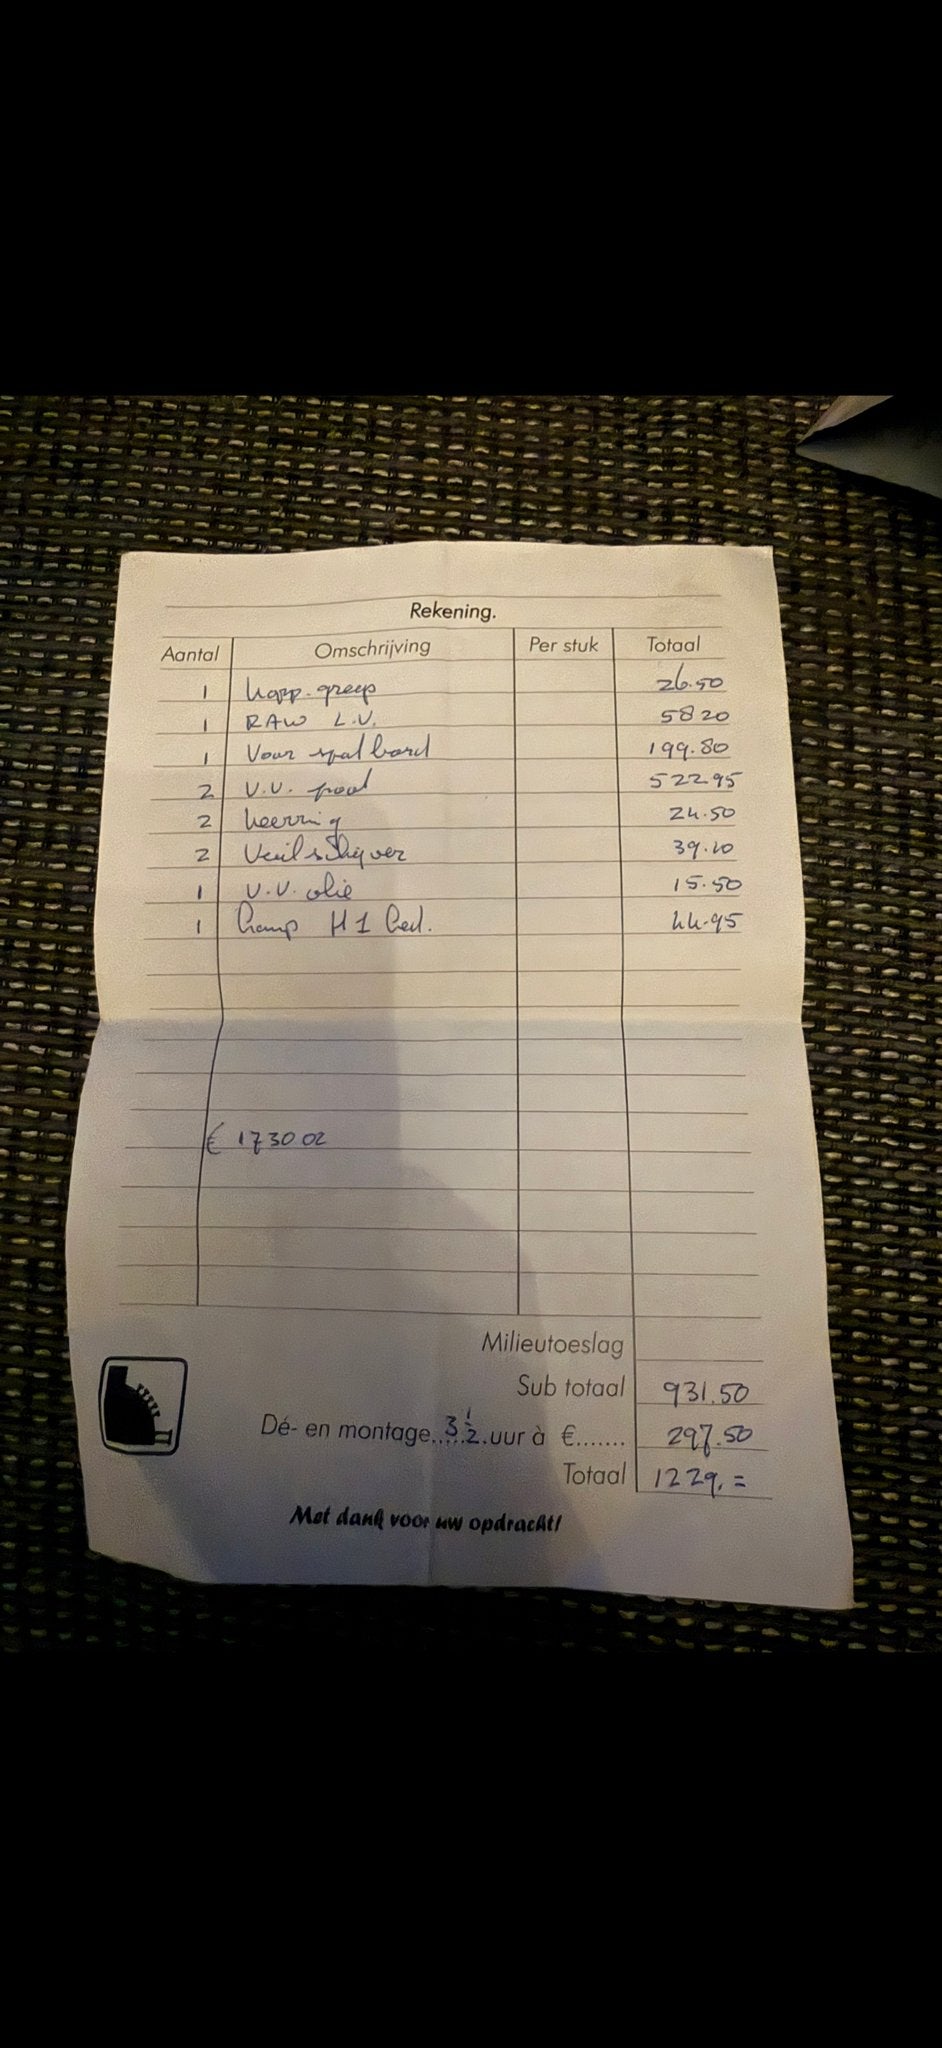 Rekening.
Aantal Omschrijving Per stuk Totaal
1 kopp. greep 26.50
1 RAW L.V. 58 20
1 Voor spatbord 199.80
2 V.V. poot 522 95
2 keerring 24.50
2 Vuilschijver 39.10
1 V.V. olie 15.50
1 Lamp H1 Led. 44.95
€ 1730 02
Milieutoeslag
Sub totaal 931.50
Dé- en montage..3 1/2..uur à €....... 297.50
Totaal 1229.=
Met dank voor uw opdracht!